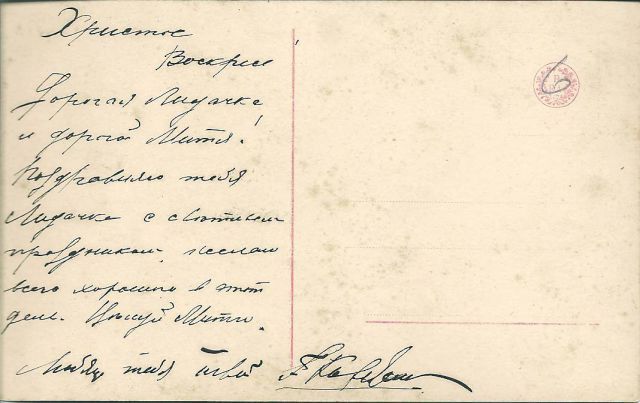 Христос
Воскресе
Дорогая Лидачка
и дорогой Митя!
Поздравляю тебя
Лидачка с святым
праздником желаю
всего хорошаго в этот
день. Целуй Митю.
Любящ тебя твой